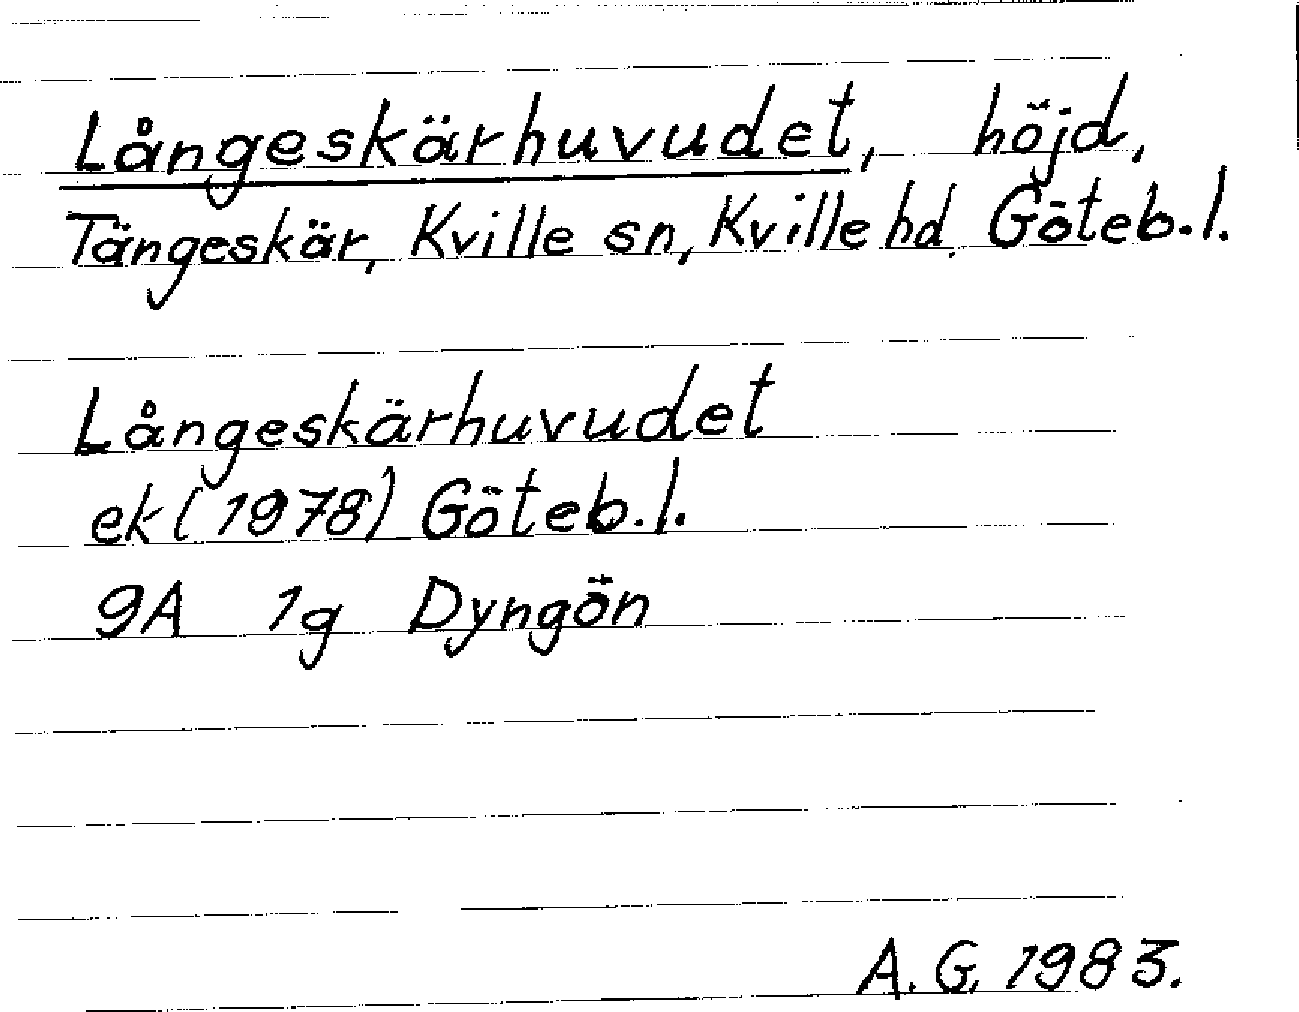 Långeskärhuvudet, höjd,
Tängeskär, Kville sn, Kville hd. Göteb.l.
Långeskärhuvudet
ek (1978) Göteb.l.
9A 1g Dyngön
A.G. 1983.